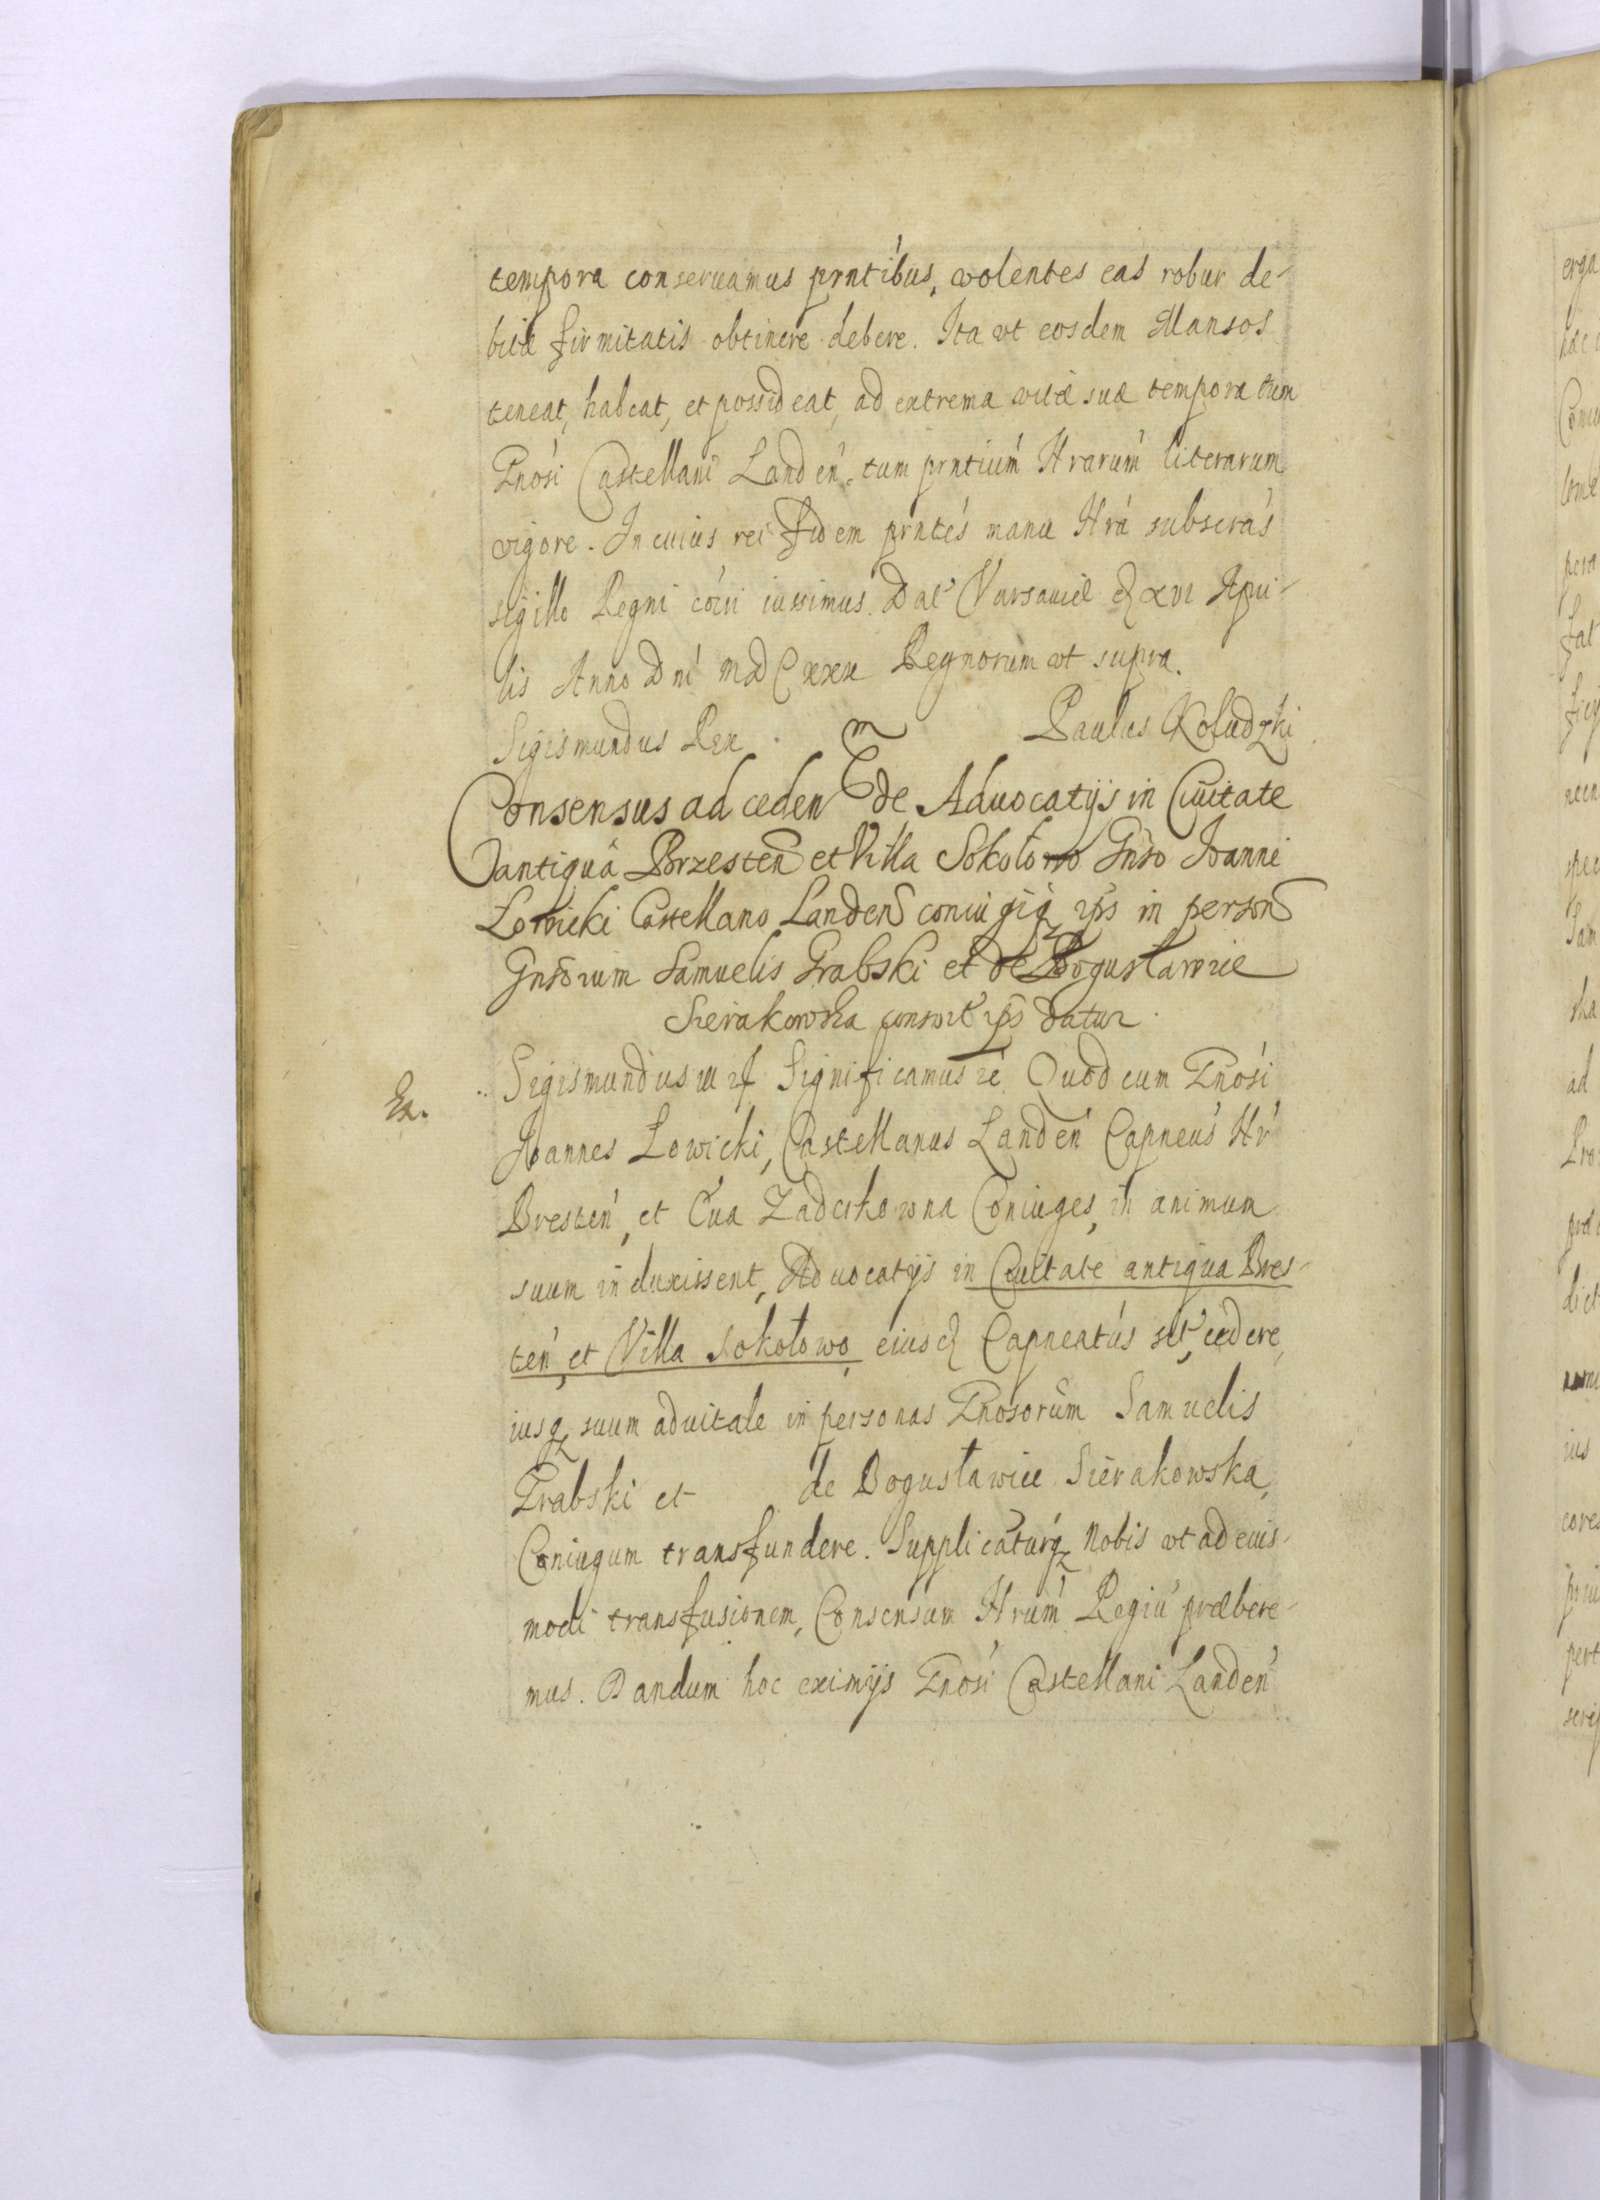 tempora conseruamus prntibus, volentes eas robur de-
bitæ firmitatis obtinere debere. Ita vt eosdem Mansos
teneat, habeat, et possideat, ad extrema vitæ suæ tempora tum
Gnosi Castellani Landen, tum prntium Nrarum literarum
vigore. In cuius rei fidem prntes manu Nra subscras
sigillo Regni coiri iussimus. Dat Varsauiæ d xvi Apri-
lis Anno Dni MDCxxx Regnorum vt supra.
Sigismundus Rex
Paulus Kołudzki
Consensus ad ceden de Aduocatijs in Ciuitate
antiqua Brzesten et Villa Sokołowo Gnso Ioanni
Łowicki Castellano Landen coniugiq ips in person
Gnsorum Samuelis Grabski et de Bogusławice
Sierakowska consort ips datur.
Ex.
Sigismundus III rf Significamus re Quod cum Gnosi
Joannes Łowicki, Castellanus Landen Capneus Nr
Bresten, et Eua Zadeskowna Coniuges, in animum
suum induxissent, Aduocatijs in Ciuitate antiqua Bres-
ten, et Villa Sokołowo, eiusd Capneatus sit, cedere,
iusq suum aduitale in personas Gnosorum Samuelis
Grabski et de Bogusławice Sierakowska,
Coniugum transfundere. Supplicaturq Nobis vt ad eius-
modi transfusionem, Consensum Nrum Regiu præbere-
mus. Dandum hoc eximijs Gnosi Castellani Landen